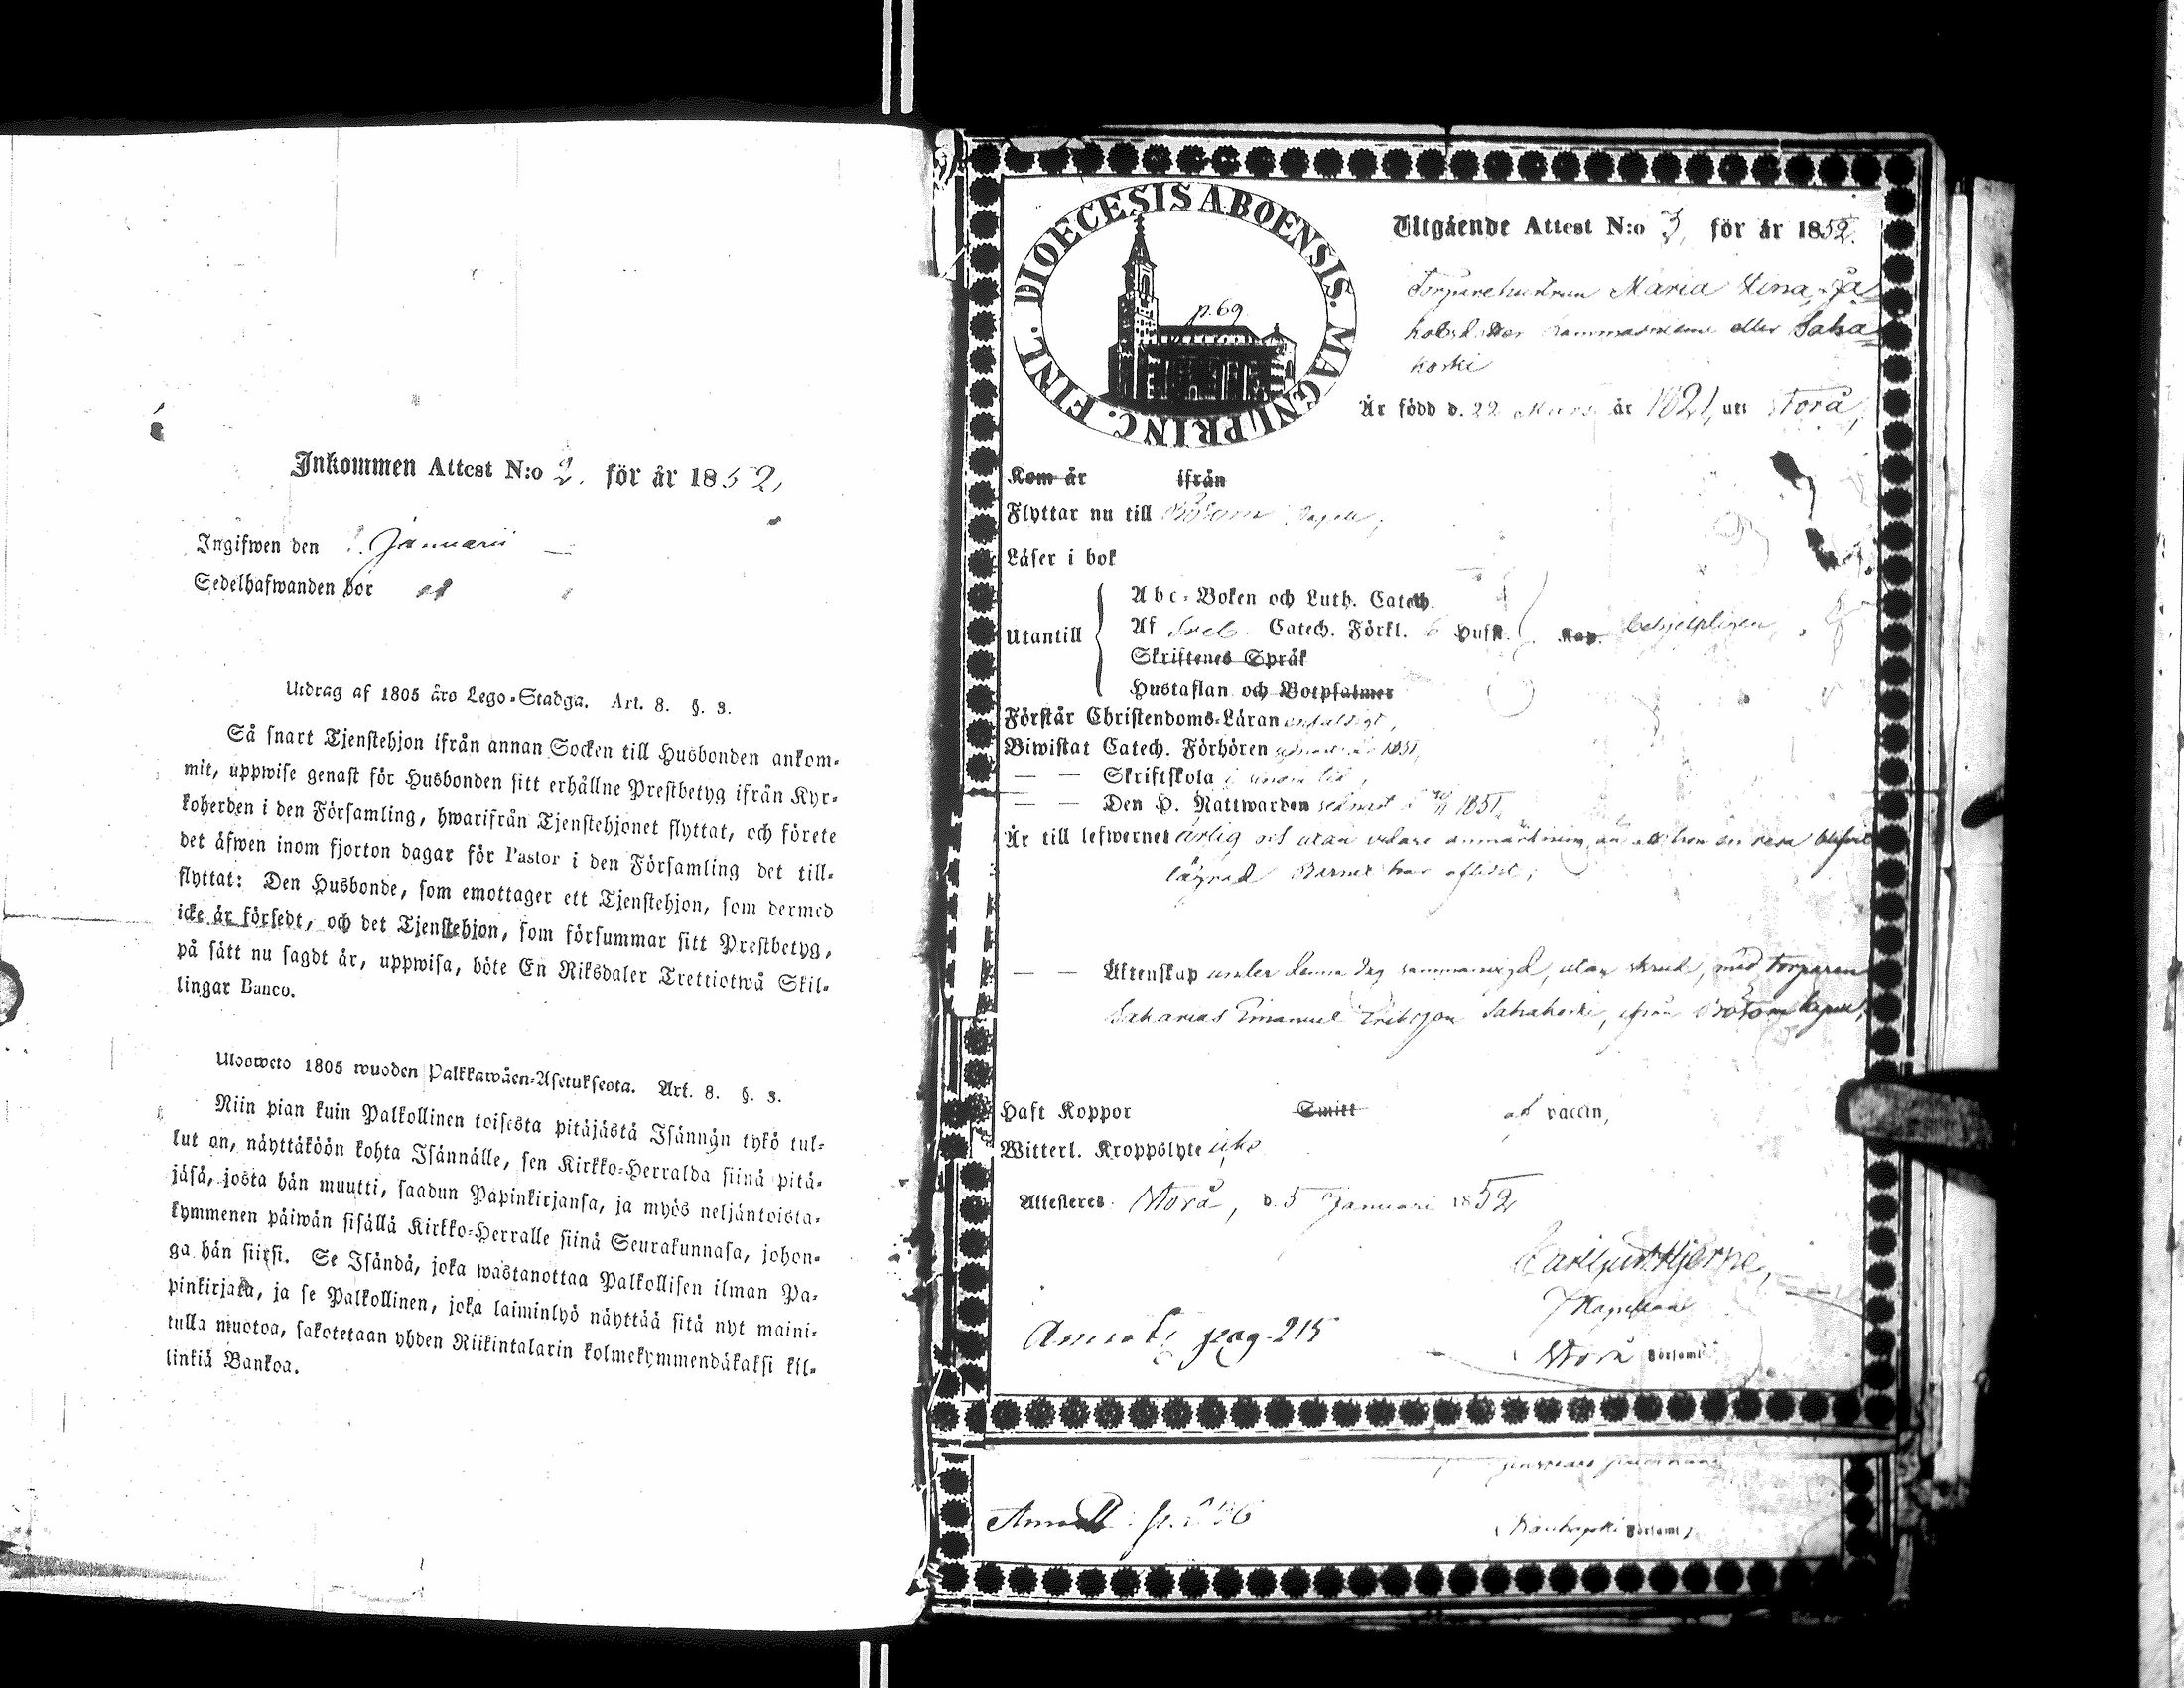 Inkommen Attest N:o 2. för år 1852,
Ingifwen den Januarii —
Sedelhafwanden bor
Utdrag af 1805 års Lego-Stadga. Art. 8. §. 3.
Så snart Tjenstehjon ifrån annan Socken till Husbonden ankom-
mit, uppwise genast för Husbonden sitt erhållne Prestbetyg ifrån Kyr-
koherden i den Församling, hwarifrån Tjenstehjonet flyttat, och förete
det äfwen inom fjorton dagar för Pastor i den Församling det till-
flyttat: Den Husbonde, som emottager ett Tjenstehjon, som dermed
icke är försedt, och det Tjenstehjon, som försummar sitt Prestbetyg,
på sätt nu sagdt är, uppwisa, böte En Riksdaler Trettiotwå Skil-
lingar Banco.
Ulosweto 1805 wuoden Palkkawäen-Asetuksesta. Art. 8. §. 3.
Niin pian kuin Palkollinen toisesta pitäjästä Isännän tykö tul-
lut on, näyttäköön kohta Isännälle, sen Kirkko-Herralda siinä pitä-
jäsä, josta hän muutti, saadun Papinkirjansa, ja myös neljäntoista-
kymmenen päiwän sisällä Kirkko-Herralle siinä Seurakunnasa, johon-
ga hän siirsi. Se Isändä, joka wastanottaa Palkollisen ilman Pa-
pinkirjata, ja se Palkollinen, joka laiminlyö näyttää sitä nyt maini-
tulla muotoa, sakotetaan yhden Riikintalarin kolmekymmendäkaksi kil-
linkiä Bankoa.
DIOECESIS ABOENSIS. MAGNI PRINC. FINL.
p. 69
Utgående Attest N:o 3, för år 1852.
Torparehustrun Maria Stina Ja
kobsdotter eller Saha
koski
Är född d. 22 Mars år 1821, uti Storå,
Kom år ifrån
Flyttar nu till Bötom Capell,
Läser i bok
Utantill
Abc-Boken och Luth. Catech.
Af Sveb. Catech. Förkl. 6 Hufst. Kap. behjelpligen,
Skriftenes Språk
Hustaflan och Botpsalmer
Förstår Christendoms-Läran enfaldigt,
Biwistat Catech. Förhören 1851,
— — Skriftskola i sinom tid,
— — Den H. Nattwarden senast 1851,
Är till lefwernet ärlig och utan vidare anmärkning än att hon en resa blifvit
lägrad Barnet har aflidit;
— — Äktenskap under denna dag sammanvigd, utan skrud, med torparen
Sakarias Emanuel Eriksson Sahakoski, ifrån Bötom Capell,
Haft Koppor Smitt af vaccin,
Witterl. Kroppslyte icke
Attesteres Storå, d. 5 Januari 1852
Carl Gust. Hjerpe,
Kapellan
Storå Församl.
Annot. pag. 215
Annot. p.
Församl.